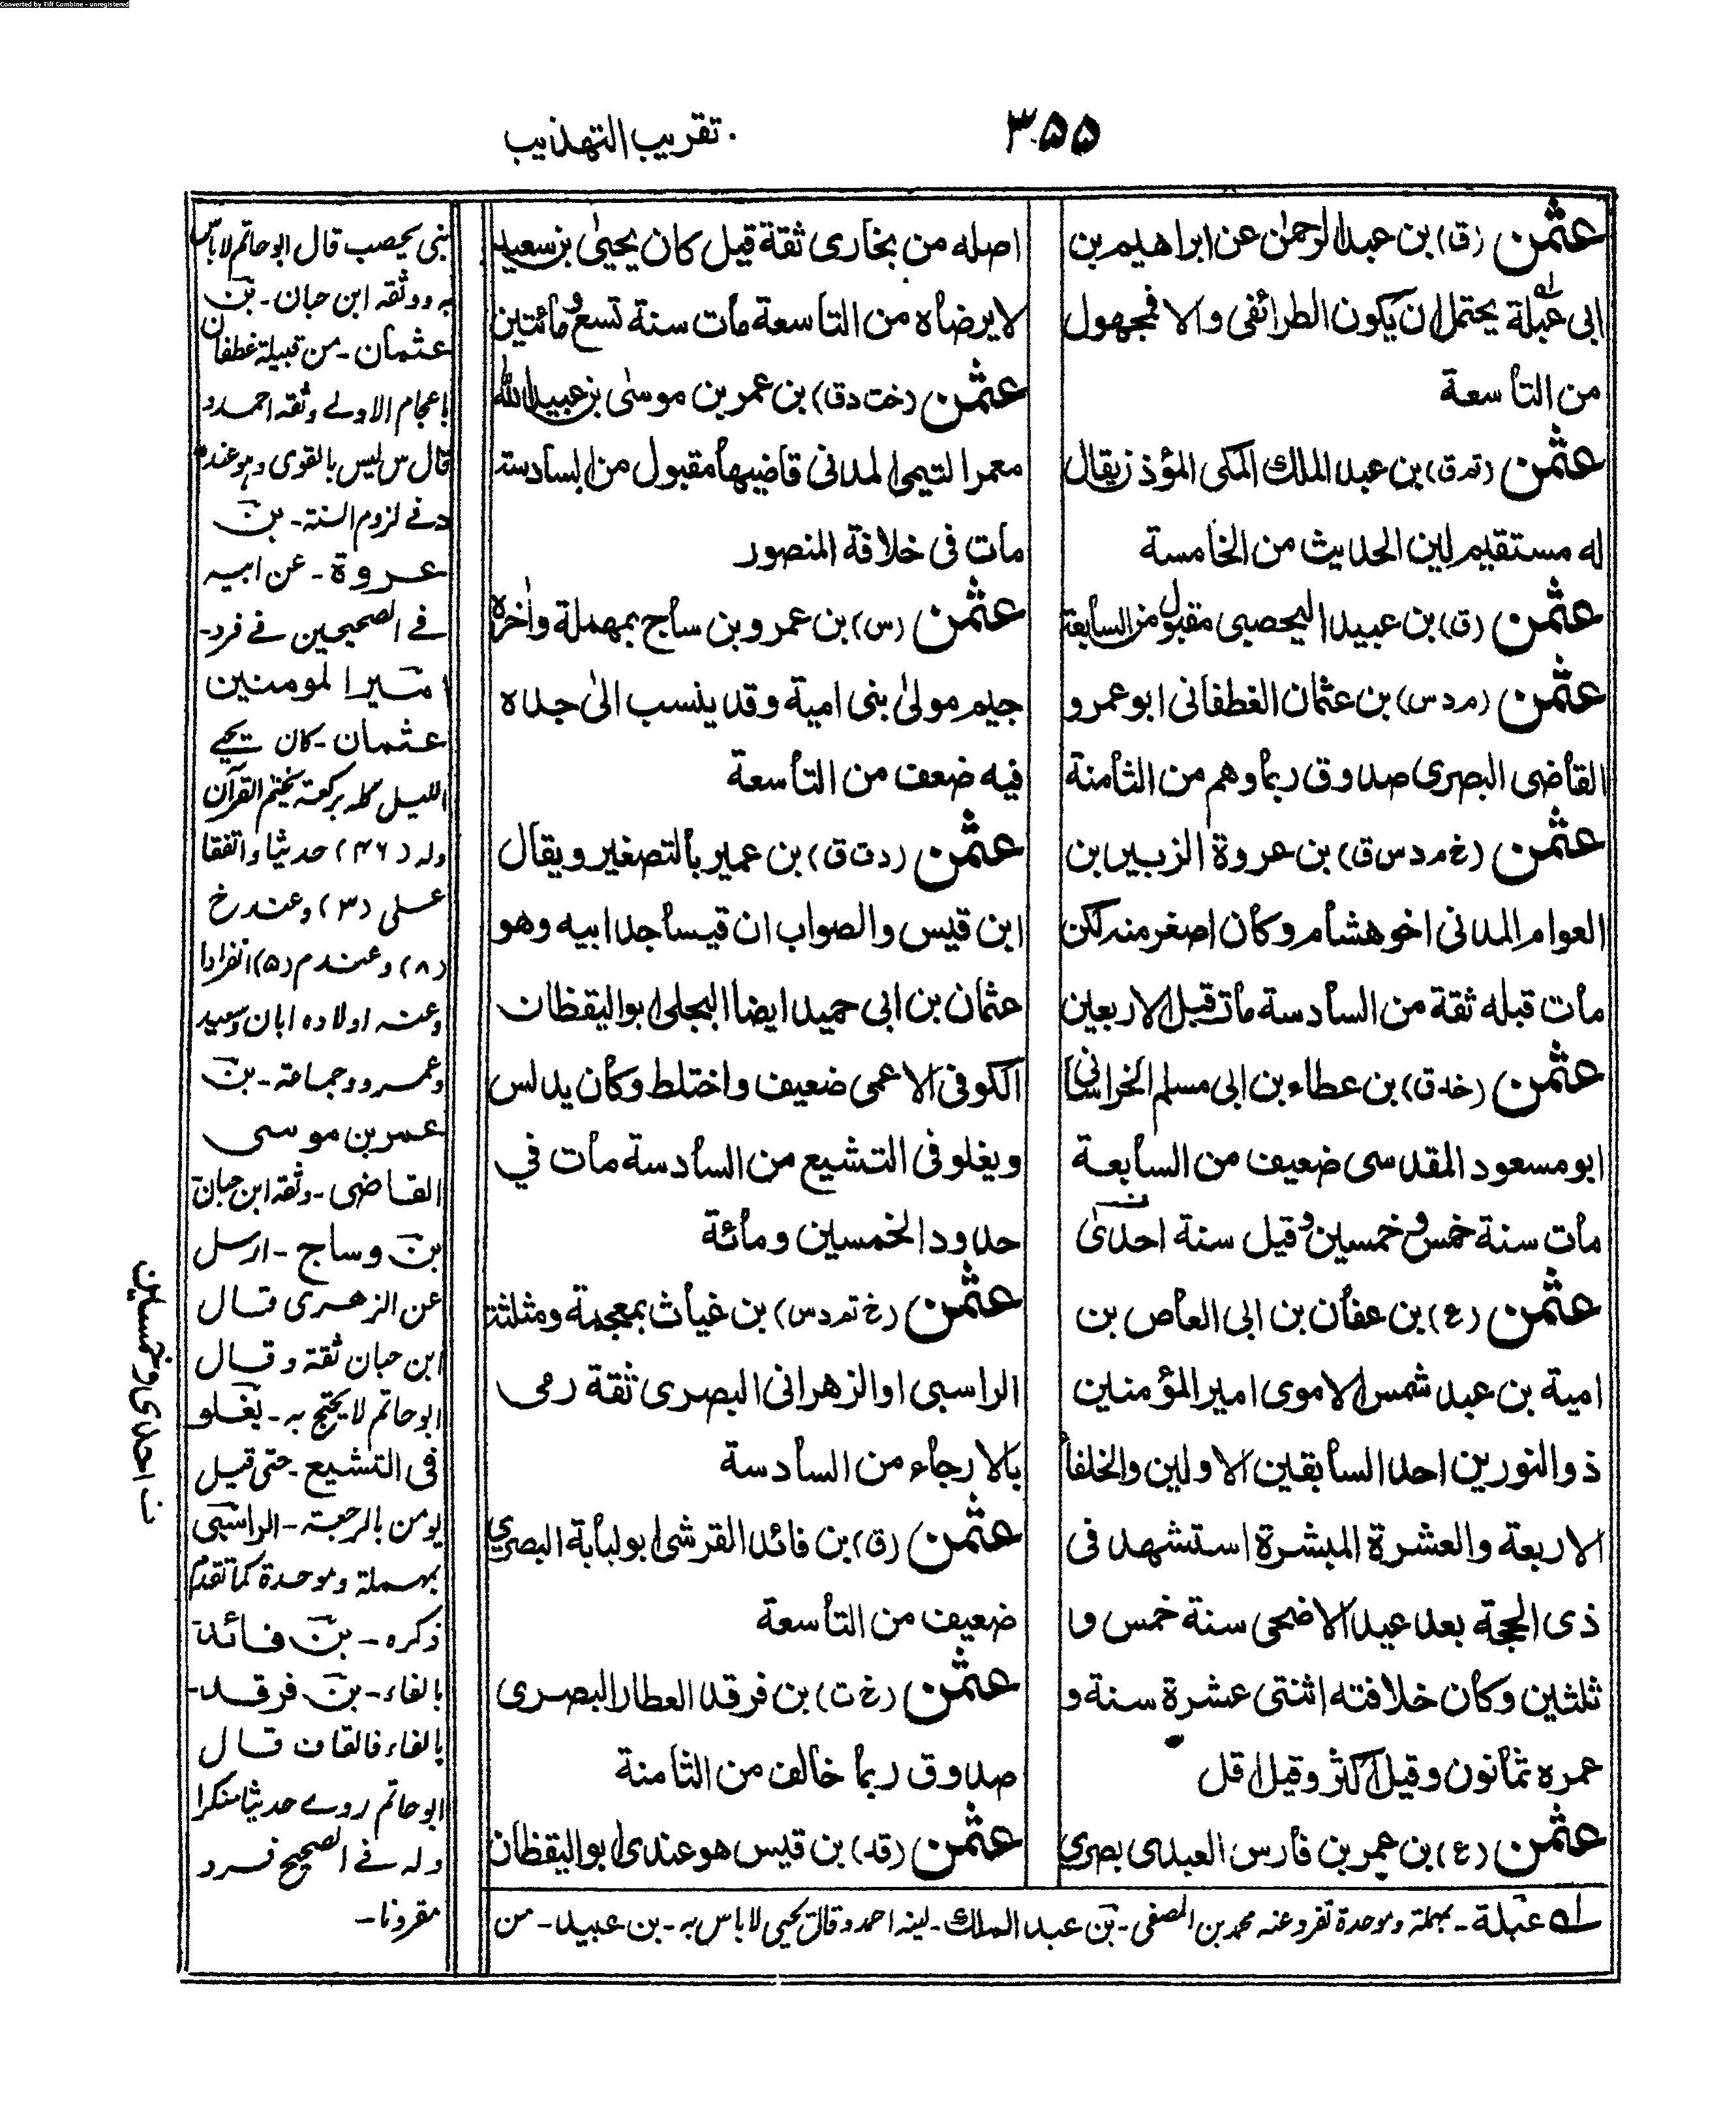 Converted by Tiff Combine - unregistered
٣٥٥
تقريب التهذيب
عثمن (ق) بن عبد الرحمن عن ابراهيم بن
ابى عبلة يحتمل ان يكون الطرائفى والا فمجهول
من التاسعة
عثمن (تم ق) بن عبد الملك المكى المؤذن يقال
له مستقيم لين الحديث من الخامسة
عثمن (ق) بن عبيد اليحصبى مقبول من السابعة
عثمن (م د س) بن عثمان الغطفانى ابو عمرو
القاضى البصرى صدوق ربما وهم من الثامنة
عثمن (خ م د س ق) بن عروة الزبير بن
العوام المدنى اخو هشام وكان اصغر منه لكن
مات قبله ثقة من السادسة مات قبل الاربعين
عثمن (خد ق) بن عطاء بن ابى مسلم الخراسانى
ابو مسعود المقدسى ضعيف من السابعة
مات سنة خمس وخمسين وقيل سنة احدى
عثمن (ع) بن عفان بن ابى العاص بن
امية بن عبد شمس الاموى امير المؤمنين
ذو النورين احد السابقين الاولين والخلفا
الاربعة والعشرة المبشرة استشهد فى
ذى الحجة بعد عيد الاضحى سنة خمس و
ثلثين وكان خلافته اثنتى عشرة سنة و
عمره ثمانون وقيل اكثر وقيل اقل
عثمن (ع) بن عمر بن فارس العبدى بصرى
اصله من بخارى ثقة قيل كان يحيى بن سعيد
لا يرضاه من التاسعة مات سنة تسع ومائتين
عثمن (خت د ق) بن عمر بن موسى بن عبيد الله
معمر التيمى المدنى قاضيها مقبول من السادسة
مات فى خلافة المنصور
عثمن (س) بن عمرو بن ساج بمهملة واخره
جيم مولى بنى امية وقد ينسب الى جده
فيه ضعف من التاسعة
عثمن (د ت ق) بن عمير بالتصغير ويقال
ابن قيس والصواب ان قيسا جد ابيه وهو
عثمان بن ابى حميد ايضا البجلى ابو اليقظان
الكوفى الاعمى ضعيف واختلط وكان يدلس
ويغلو فى التشيع من السادسة مات في
حدود الخمسين ومائة
عثمن (خ م د س) بن غياث بمعجمة ومثلثة
الراسبى او الزهرانى البصرى ثقة رمى
بالارجاء من السادسة
عثمن (ق) بن فائد القرشى ابو لبابة البصري
ضعيف من التاسعة
عثمن (خ ت) بن فرقد العطار البصرى
صدوق ربما خالف من الثامنة
عثمن (قد) بن قيس هو عندى ابو اليقظان
له عبلة - بمهملة وموحدة تفرد عنه محمد بن المصفى - بن عبد الملك - لينه احمد وقال يحيى لا باس به - بن عبيد - من
بنى يحصب قال ابو حاتم لا باس
به ووثقه ابن حبان - بن
عثمان - من قبيلة غطفان
باعجام الاولے وثقه احمد و
قال س ليس بالقوى وهو عنده
فے لزوم السنة - بن
عروة - عن ابيه
فے الصحيحين فے فرد -
امير المومنين
عثمان - كان يحيے
الليل كله بركعة يختم القرآن
وله (١٤٦) حديثا واتفقا
على (٣) وعند خ
(٨) وعند م (٥) انفرادا
وعنه اولاده ابان وسعيد
وعمرو وجماعة - بن
عمر بن موسى
القاضى - وثقه ابن حبان
بن وساج - ارسل
عن الزهرى قال
ابن حبان ثقة وقال
ابو حاتم لا يحتج به - يغلو
فى التشيع - حتى قيل
يومن بالرجعة - الراسبى
بمهملة وموحدة كما تقدم
ذكره - بن فائد
بالفاء - بن فرقد -
بالفاء فالقاف قال
ابو حاتم روے حديثا منكرا
وله فے الصحيح فرد
مقرونا -
ن احدى وخمسين